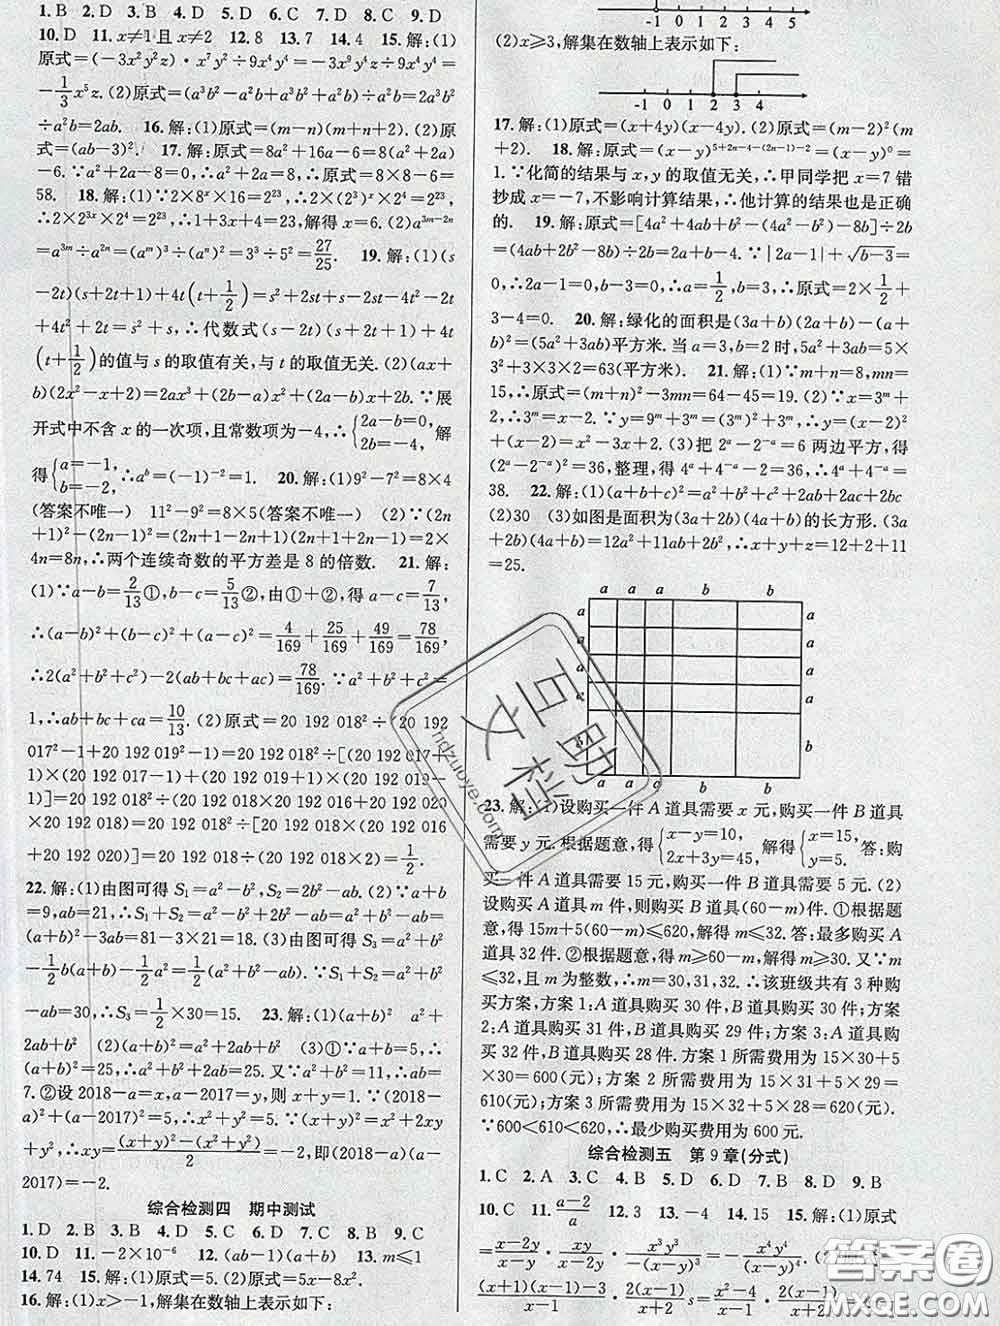 1. B 2. D 3. B 4. D 5. C 6. D 7. D 8. C 9. D
10. D 11. x≠1且x≠2 12. 8 13. 7 14. 4 15. 解:(1)
原式=(-3x²y²z)·x⁶y²÷9x⁴y⁴=-3x⁹y⁴÷9x⁴y⁴=
-1/3x⁵z. (2)原式=(a³b²-a²b+a³b²+a²b)÷a²b=2a³b²
÷a²b=2ab. 16. 解:(1)原式=(m-n)(m+n+2). (2)原式
=(ab-3)². 17. 解:原式=8a²+16a-6=8(a²+2a)
-6. ∵a²+2a-8=0,∴a²+2a=8,∴原式=8×8-6=
58. 18. 解:(1)∵2×8ˣ×16=2²³,
∴2×2³ˣ×2⁴=2²³,∴1+3x+4=23,解得x=6. (2)a³ᵐ⁻²ⁿ
=a³ᵐ÷a²ⁿ=(aᵐ)³÷(aⁿ)²=3³÷5²=27/25. 19. 解:(1)(s
-2t)(s+2t+1)+4t(t+1/2)=s²+2st+s-2st-4t²-2t+
4t²+2t=s²+s,∴代数式(s-2t)(s+2t+1)+4t
(t+1/2)的值与s的取值有关,与t的取值无关. (2)(ax+
b)(2x²-x+2)=2ax³+(2b-a)x²+(2a-b)x+2b. ∵展
开式中不含x的一次项,且常数项为-4,∴{2a-b=0, 2b=-4, 解
得{a=-1, b=-2, ∴aᵇ=(-1)⁻²=1. 20. 解:(1)9²-7²=8×4
(答案不唯一) 11²-9²=8×5(答案不唯一) (2)∵(2n
+1)²-(2n-1)²=(2n+1-2n+1)(2n+1+2n-1)=2×
4n=8n,∴两个连续奇数的平方差是8的倍数. 21. 解:
(1)∵a-b=2/13①,b-c=5/13②,由①+②,得a-c=7/13,
∴(a-b)²+(b-c)²+(a-c)²=4/169+25/169+49/169=78/169,
∴2(a²+b²+c²)-2(ab+bc+ac)=78/169. ∵a²+b²+c²=
1,∴ab+bc+ca=10/13. (2)原式=20 192 018²÷(20 192
017²-1+20 192 019²-1)=20 192 018²÷[(20 192 017
+1)×(20 192 017-1)+(20 192 019+1)×(20 192 019
-1)]=20 192 018²÷(20 192 018×20 192 016+20 192
020×20 192 018)=20 192 018²÷[20 192 018×(20 192 016
+20 192 020)]=20 192 018²÷(2×20 192 018²)=1/2.
22. 解:(1)由图可得S₁=a²-b²,S₂=2b²-ab. (2)∵a+b
=9,ab=21,∴S₁+S₂=a²-b²+2b²-ab=a²+b²-ab=
(a+b)²-3ab=81-3×21=18. (3)由图可得S₃=a²+b²
-1/2b(a+b)-1/2a²=1/2(a²+b²-ab). ∵S₁+S₂=a²+b²
-ab=30,∴S₃=1/2×30=15. 23. 解:(1)(a+b)² a²+
2ab+b² (2)(a+b)²=a²+2ab+b² (3)①∵a+b=5,∴
(a+b)²=25,∴a²+b²+2ab=25. 又∵a²+b²=11,∴ab=
7. ②设2018-a=x,a-2017=y,则x+y=1. ∵(2018-
a)²+(a-2017)²=5,∴x²+y²=5. ∵(x+y)²=x²+2xy+
y²,∴xy=((x+y)²-(x²+y²))/2=-2,即(2018-a)(a-
2017)=-2.
综合检测四 期中测试
1. D 2. B 3. B 4. D 5. C 6. D 7. B 8. C 9. C
10. D 11. -2×10⁻⁶ 12. (ab-1)(a+b) 13. m≤1
14. 74 15. 解:(1)原式=5. (2)原式=5x-8x².
16. 解:(1)x>-1,解集在数轴上表示如下:
-1 0 1 2 3 4 5
(2)x≥3,解集在数轴上表示如下:
-1 0 1 2 3 4
17. 解:(1)原式=(x+4y)(x-4y). (2)原式=(m-2)²(m
+2). 18. 解:原式=(x-y)⁵⁺²ⁿ⁻⁴⁻⁽²ⁿ⁻¹⁾⁻²=(x-y)⁰=
1. ∵化简的结果与x,y的取值无关,∴甲同学把x=7错
抄成x=-7,不影响计算结果,∴他计算的结果也是正确
的. 19. 解:原式=[4a²+4ab+b²-(4a²-b²)-8b]÷2b
=(4ab+2b²-8b)÷2b=2a+b-4. ∵|2a-1|+√(b-3)
=0,∴2a-1=0,b-3=0,∴a=1/2,b=3,∴原式=2×1/2+
3-4=0. 20. 解:绿化的面积是(3a+b)(2a+b)-(a+
b)²=(5a²+3ab)平方米. 当a=3,b=2时,5a²+3ab=5×
3²+3×3×2=63(平方米). 21. 解:(1)∵m+n=8,mn=
15,∴原式=(m+n)²-3mn=64-45=19. (2)∵x=3ᵐ+
2,∴3ᵐ=x-2. ∵y=9ᵐ+3ᵐ=(3ᵐ)²+3ᵐ,∴y=(x-2)²
+(x-2)=x²-3x+2. (3)把2ᵃ-2⁻ᵃ=6两边平方,得
(2ᵃ-2⁻ᵃ)²=36,整理,得4ᵃ+4⁻ᵃ-2=36,∴4ᵃ+4⁻ᵃ=
38. 22. 解:(1)(a+b+c)²=a²+b²+c²+2ab+2ac+2bc
(2)30 (3)如图是面积为(3a+2b)(4a+b)的长方形. (3a
+2b)(4a+b)=12a²+11ab+2b²,∴x+y+z=12+2+11
=25.
a a a b b
a a
a a
a a
a
b b
a a a b b
23. 解:(1)设购买一件A道具需要x元,购买一件B道具
需要y元. 根据题意,得{x-y=10, 2x+3y=45, 解得{x=15, y=5. 答:购
买一件A道具需要15元,购买一件B道具需要5元. (2)
设购买A道具m件,则购买B道具(60-m)件. ①根据题
意,得15m+5(60-m)≤620,解得m≤32. 答:最多购买A
道具32件. ②根据题意,得m≥60-m,解得m≥30. 又∵m
≤32,且m为整数,∴m=30,31,32. ∴该班级共有3种购
买方案,方案1:A道具购买30件,B道具购买30件;方案
2:A道具购买31件,B道具购买29件;方案3:A道具购买
32件,B道具购买28件. 方案1所需费用为15×30+5
×30=600(元);方案2所需费用为15×31+5×29=
610(元);方案3所需费用为15×32+5×28=620(元).
∵600<610<620,∴最少购买费用为600元.
综合检测五 第9章(分式)
1. C 2. A 3. B 4. C 5. A 6. B 7. D 8. D 9. B
10. C 11. (a-2)/a 12. 3 13. -4 14. 15 15. 解:(1)原式
=(x-2y)/xy·xy/(x-2y)·x³y³/(-xy)³=-x⁴y⁴/
(x+1)(x-1)-3/x-1·2(x-1)/x+2=x²-4/x-1·2(x-1)/x+2
互助文档
hdzuoye.com
答案圈
MXQE.COM